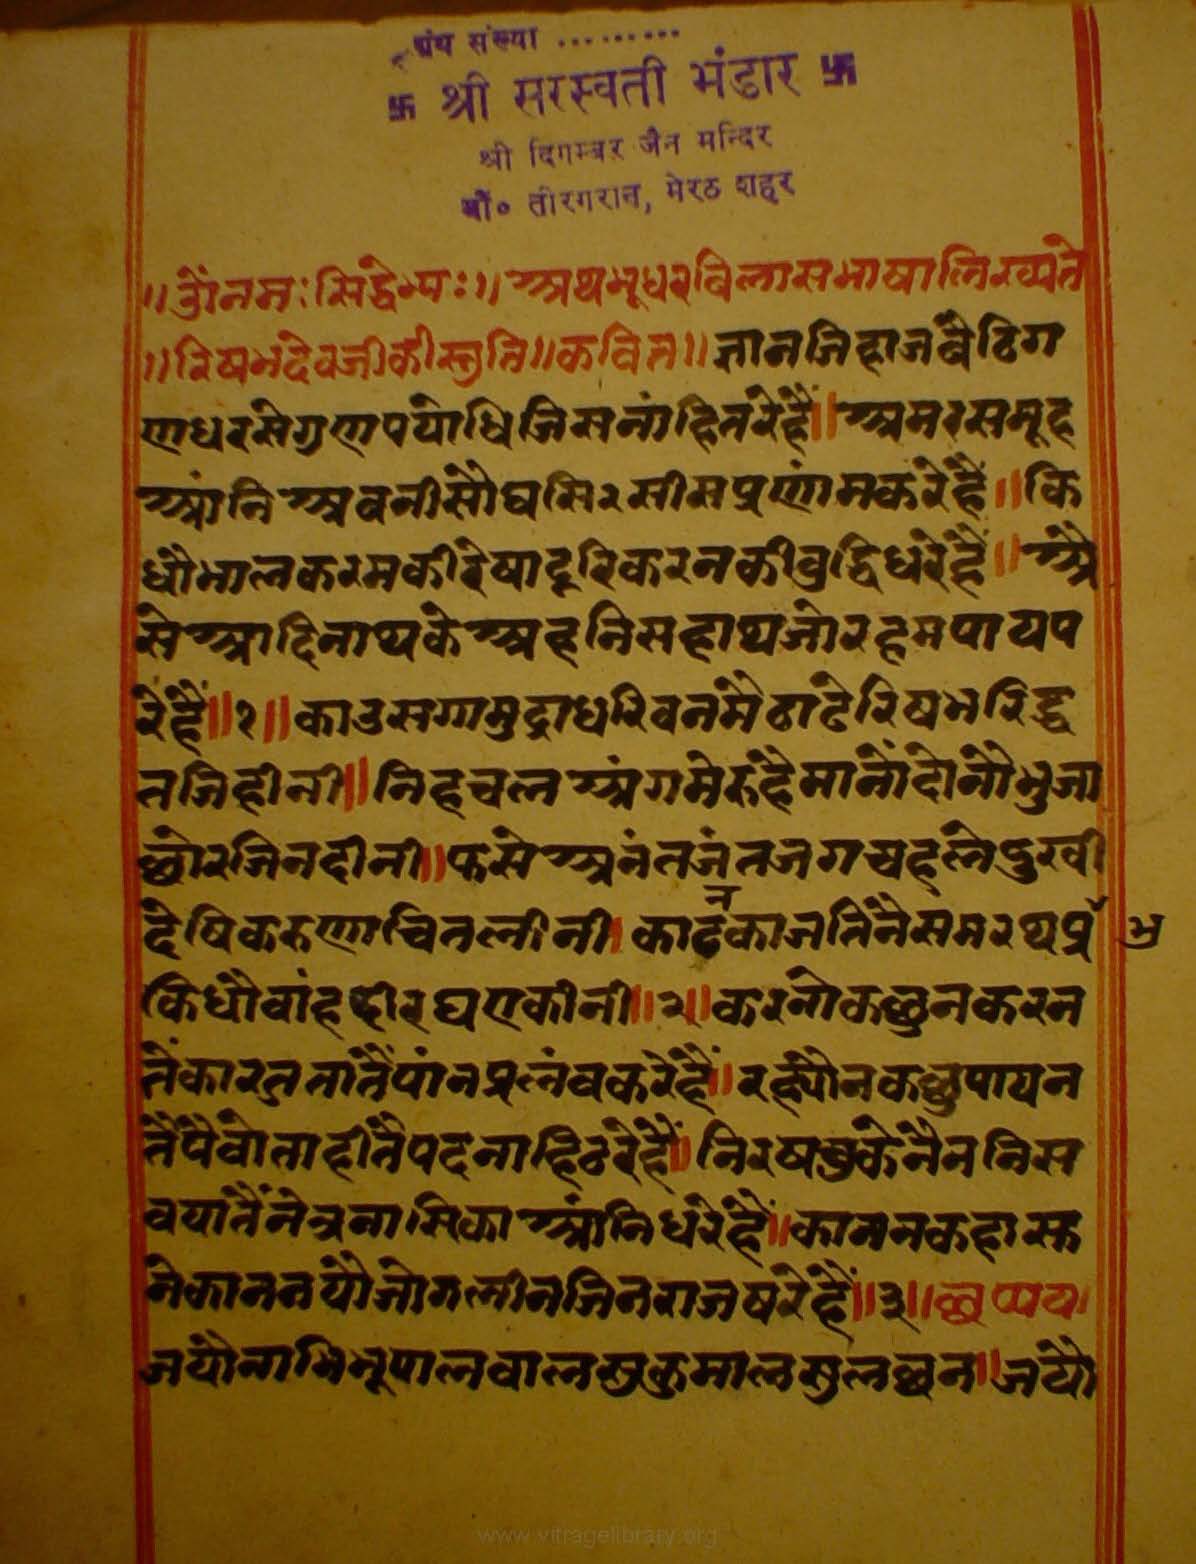 ग्रंथ संख्या .........
卐 श्री सरस्वती भंडार 卐
श्री दिगम्बर जैन मन्दिर
मौ० तीरगरान, मेरठ शहर
॥ओंनमःसिद्धेभ्यः॥अथभूधरविलासभाषालिख्यते
॥रिषभदेवजीकीस्तुति॥कवित॥ज्ञानजिहाजवैठिग
णधरसेगुणपयोधिजिसनांहितरेहैं॥अमरसमूह
आंनिअवनीसौघसिरसीसप्रणांमकरेहैं॥कि
धौभालकरमकीरेषादूरिकरनकीवुद्धिधरेहैं॥अै
सेआदिनाथकेअहनिसहाथजोरहमपायप
रेहैं॥१॥काउसग्गमुद्राधरिवनमैठाढेरिषभरिद्ध
तजिहीनी॥निहचलअंगमेरुहैमानौंदोनौभुजा
छोरजिनदीनी॥फसेअनंतजंतजगचहलेदुरवी
देषिकरुणाचितलीनी।काढनकाजतिनैसमरथप्रभु
किधौवांहदीरघएकीनी॥२॥करनोकछुनकरन
तैंकारतुतातैंपांनप्रलंवकरेहैं॥रह्यौनकछुपायन
तैंपैवोताहीतैपदनाहिठरेहैं॥निरषचुकेनैननिस
वयातैंनेत्रनासिकाआंनिधरेहैं॥कानमकहासु
नेकाननयौजोगलीनजिनराजषरेहैं॥३॥छप्पय।
जयौनाभिभूपालवालसुकुमालसुलछन॥जयौ
www.vitragelibrary.org